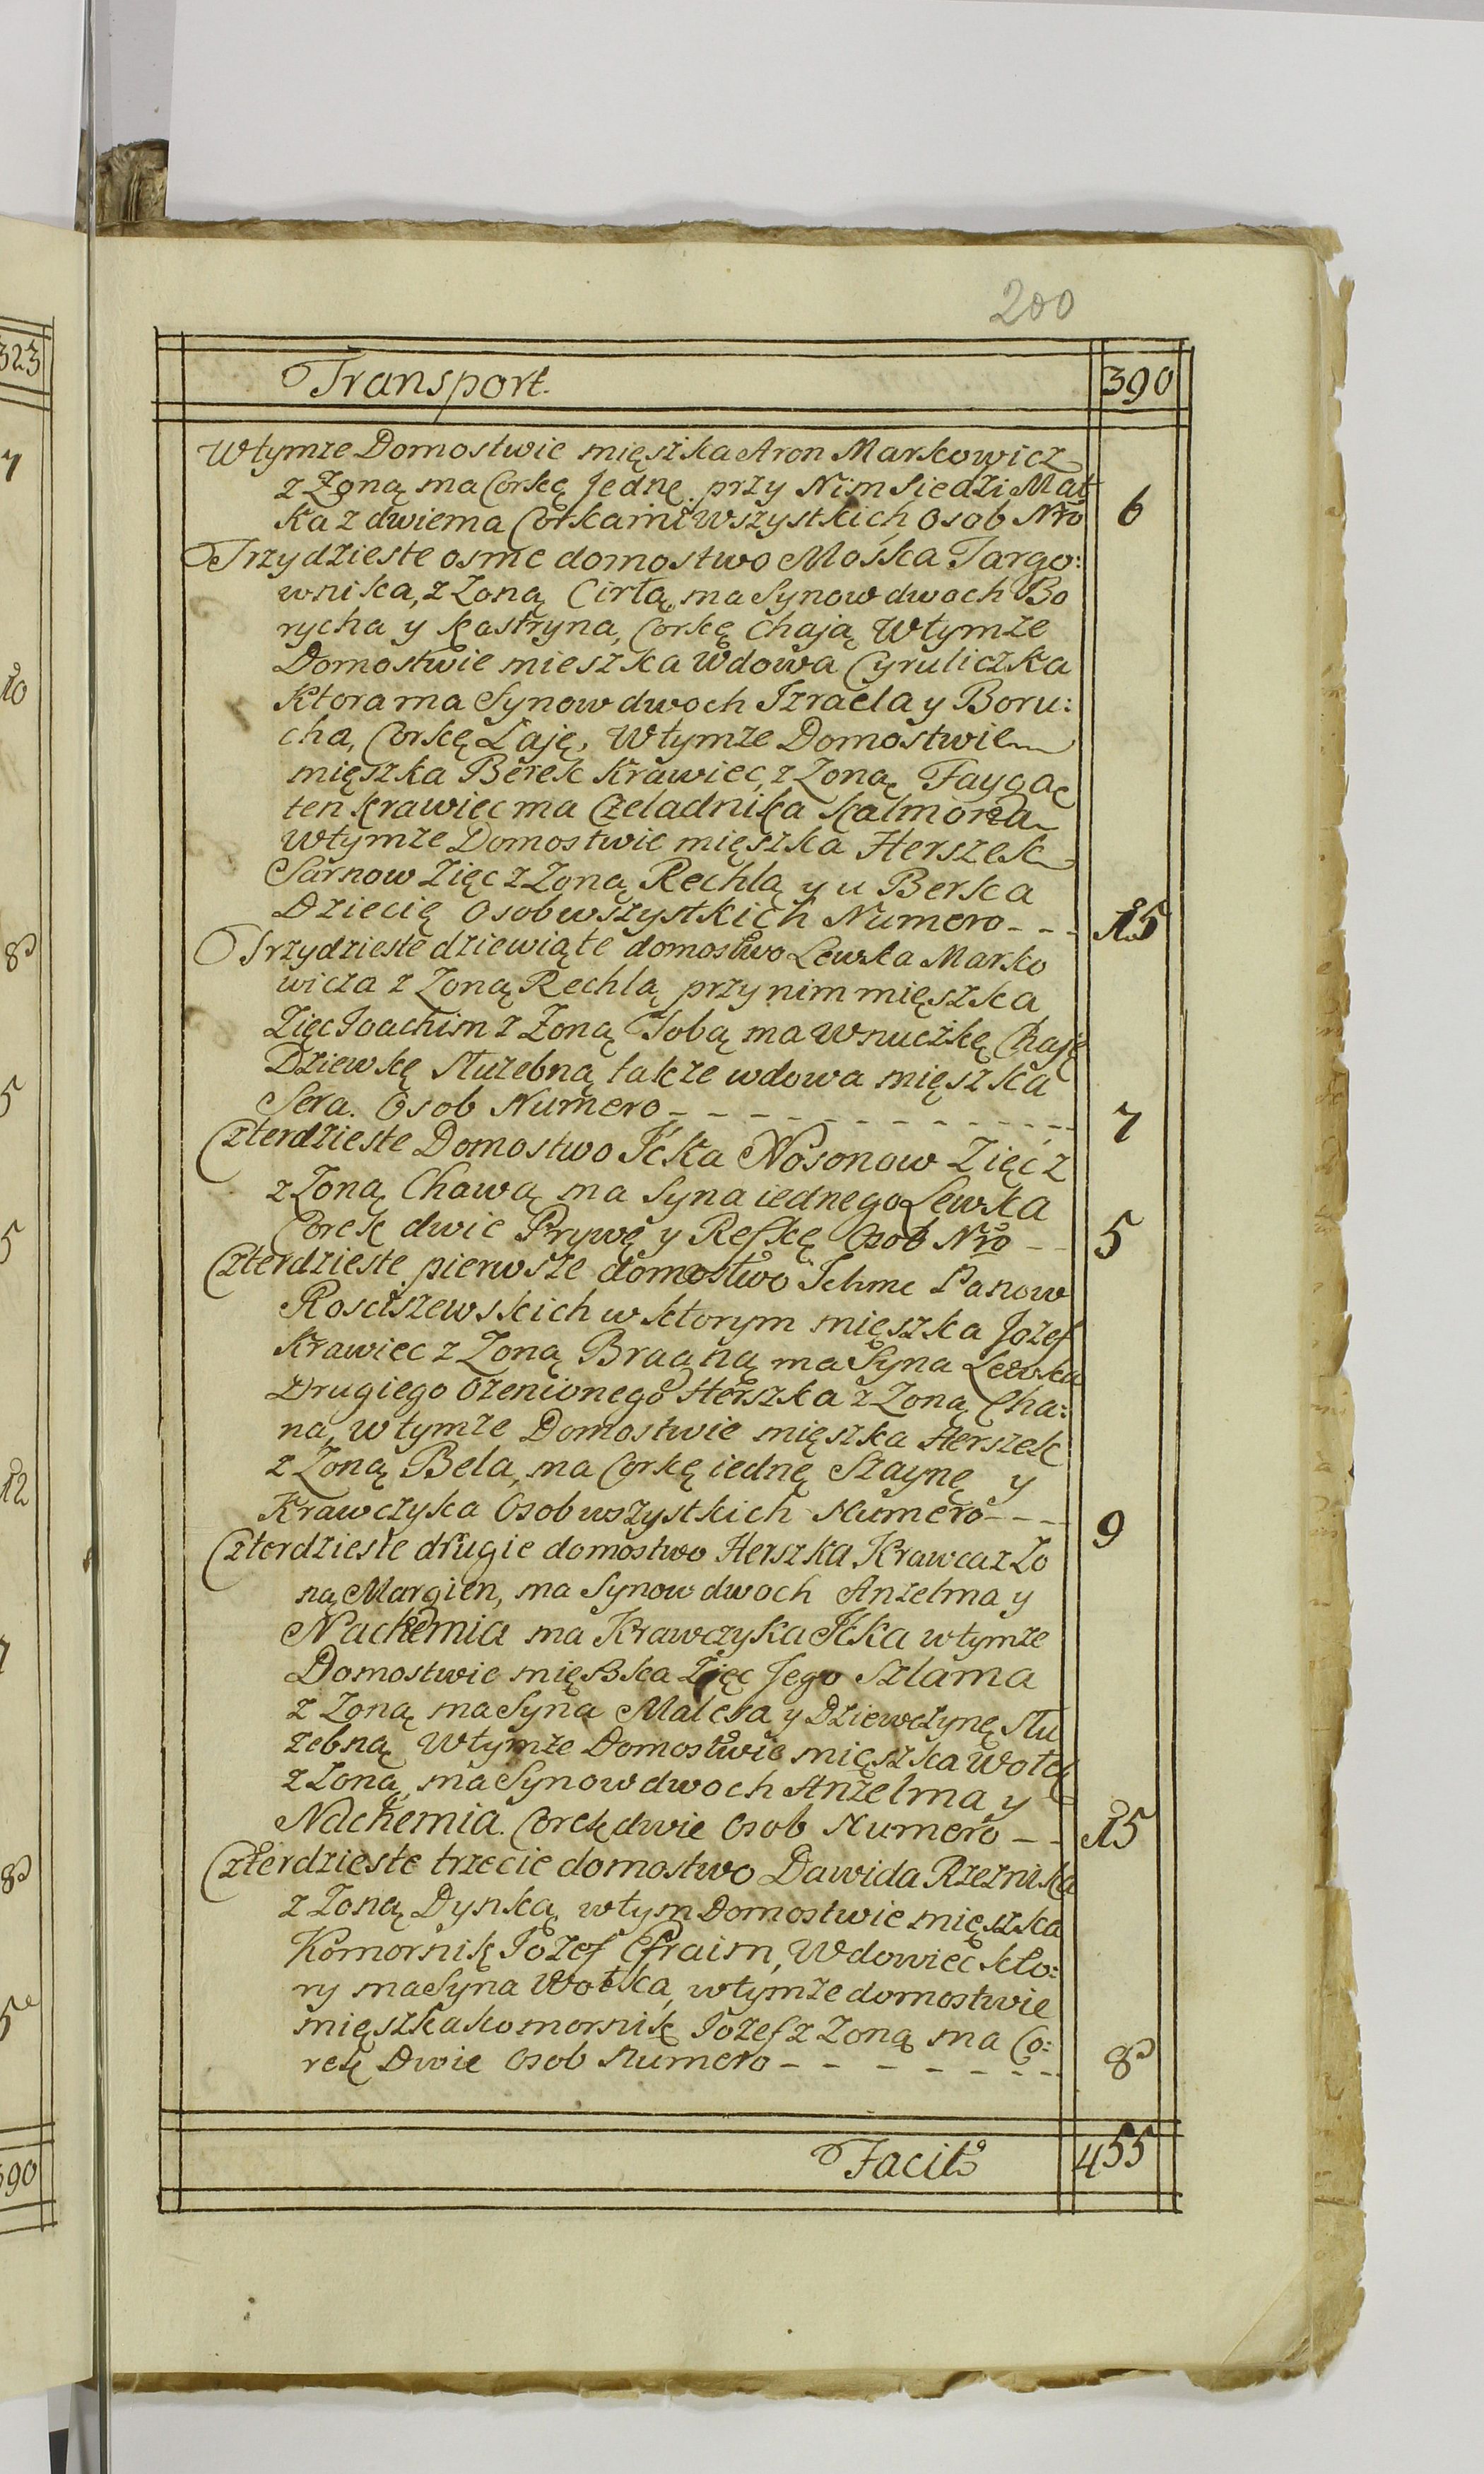 200
Transport. 390
Wtymze Domostwie mięszka Aron Markowicz
z Zoną ma Corkę Jednę. przy Nim Siedzi Mat
ka z dwiema Corkami wszystkich Osob Nro 6
Trzydzieste osme domostwo Moska Targo:
wnika, z Zoną Cirlą, ma Synow dwoch Bo
rycha y Kastryna, Corkę Chają Wtymze
Domostwie mieszka Wdowa Cyruliczka
Ktora ma Synow dwoch Izraela y Boru:
cha, Corkę Łaję, Wtymze Domostwie
mięszka Berek Krawiec, z Zoną Faygą
ten krawiec ma Czeladnika Kalmona
Wtymze Domostwie mięszka Herszek
Sarnow Zięc z Zoną Rechlą y u Berka
Dziecię Osob wszystkich Numero 15
Trzydzieste dziewiąte domostwo Lewka Marko
wicza z Zoną Rechlą przy nim mięszka
Zięc Joachim z Zoną Tobą ma Wnuczkę Chaję
Dziewkę Służebną także wdowa mięszka
Sera. Osob Numero 7
Czterdzieste Domostwo Icka Nosonow Zięc z
z Zoną Chawą ma Syna iednego Lewka
Corek dwie Prywę y Reskę Osob Nro 5
Czterdzieste pierwsze domostwo Ichmc Panow
Rosciszewskich w ktorym mięszka Jozef
Krawiec z Zoną Bragną ma Syna Lewka
Drugiego Ozenionego Herszka z Zoną Cha:
ną, w tymze Domostwie mięszka Herszek
z Zoną Bela, ma Corkę iednę Szaynę y
Krawczyka Osob wszystkich Numero 9
Czterdzieste drugie domostwo Herszka Krawca z Zo
ną Margien, ma Synow dwoch Anzelma y
Nachemia ma Krawczyka Icka w tymze
Domostwie mięszka Zięc Jego Szlama
z Zoną ma Syna Malcha y Dziewczynę Słu
zebną Wtymze Domostwie mięszka Wolek
z Zoną, ma Synow dwoch Anzelma y
Nachemia. Corek dwie Osob Numero 15
Czterdzieste trzecie domostwo Dawida Rzeznika
z Zoną Dynką w tym Domostwie mięszka
Komornik Jozef Efraim, Wdowiec kto:
ry ma Syna Wolka, w tymze domostwie
mięszka komornik Jozef z Zoną ma Co:
rek Dwie Osob Numero 8
Facit 455
323
7
10
8
5
5
12
7
8
5
390